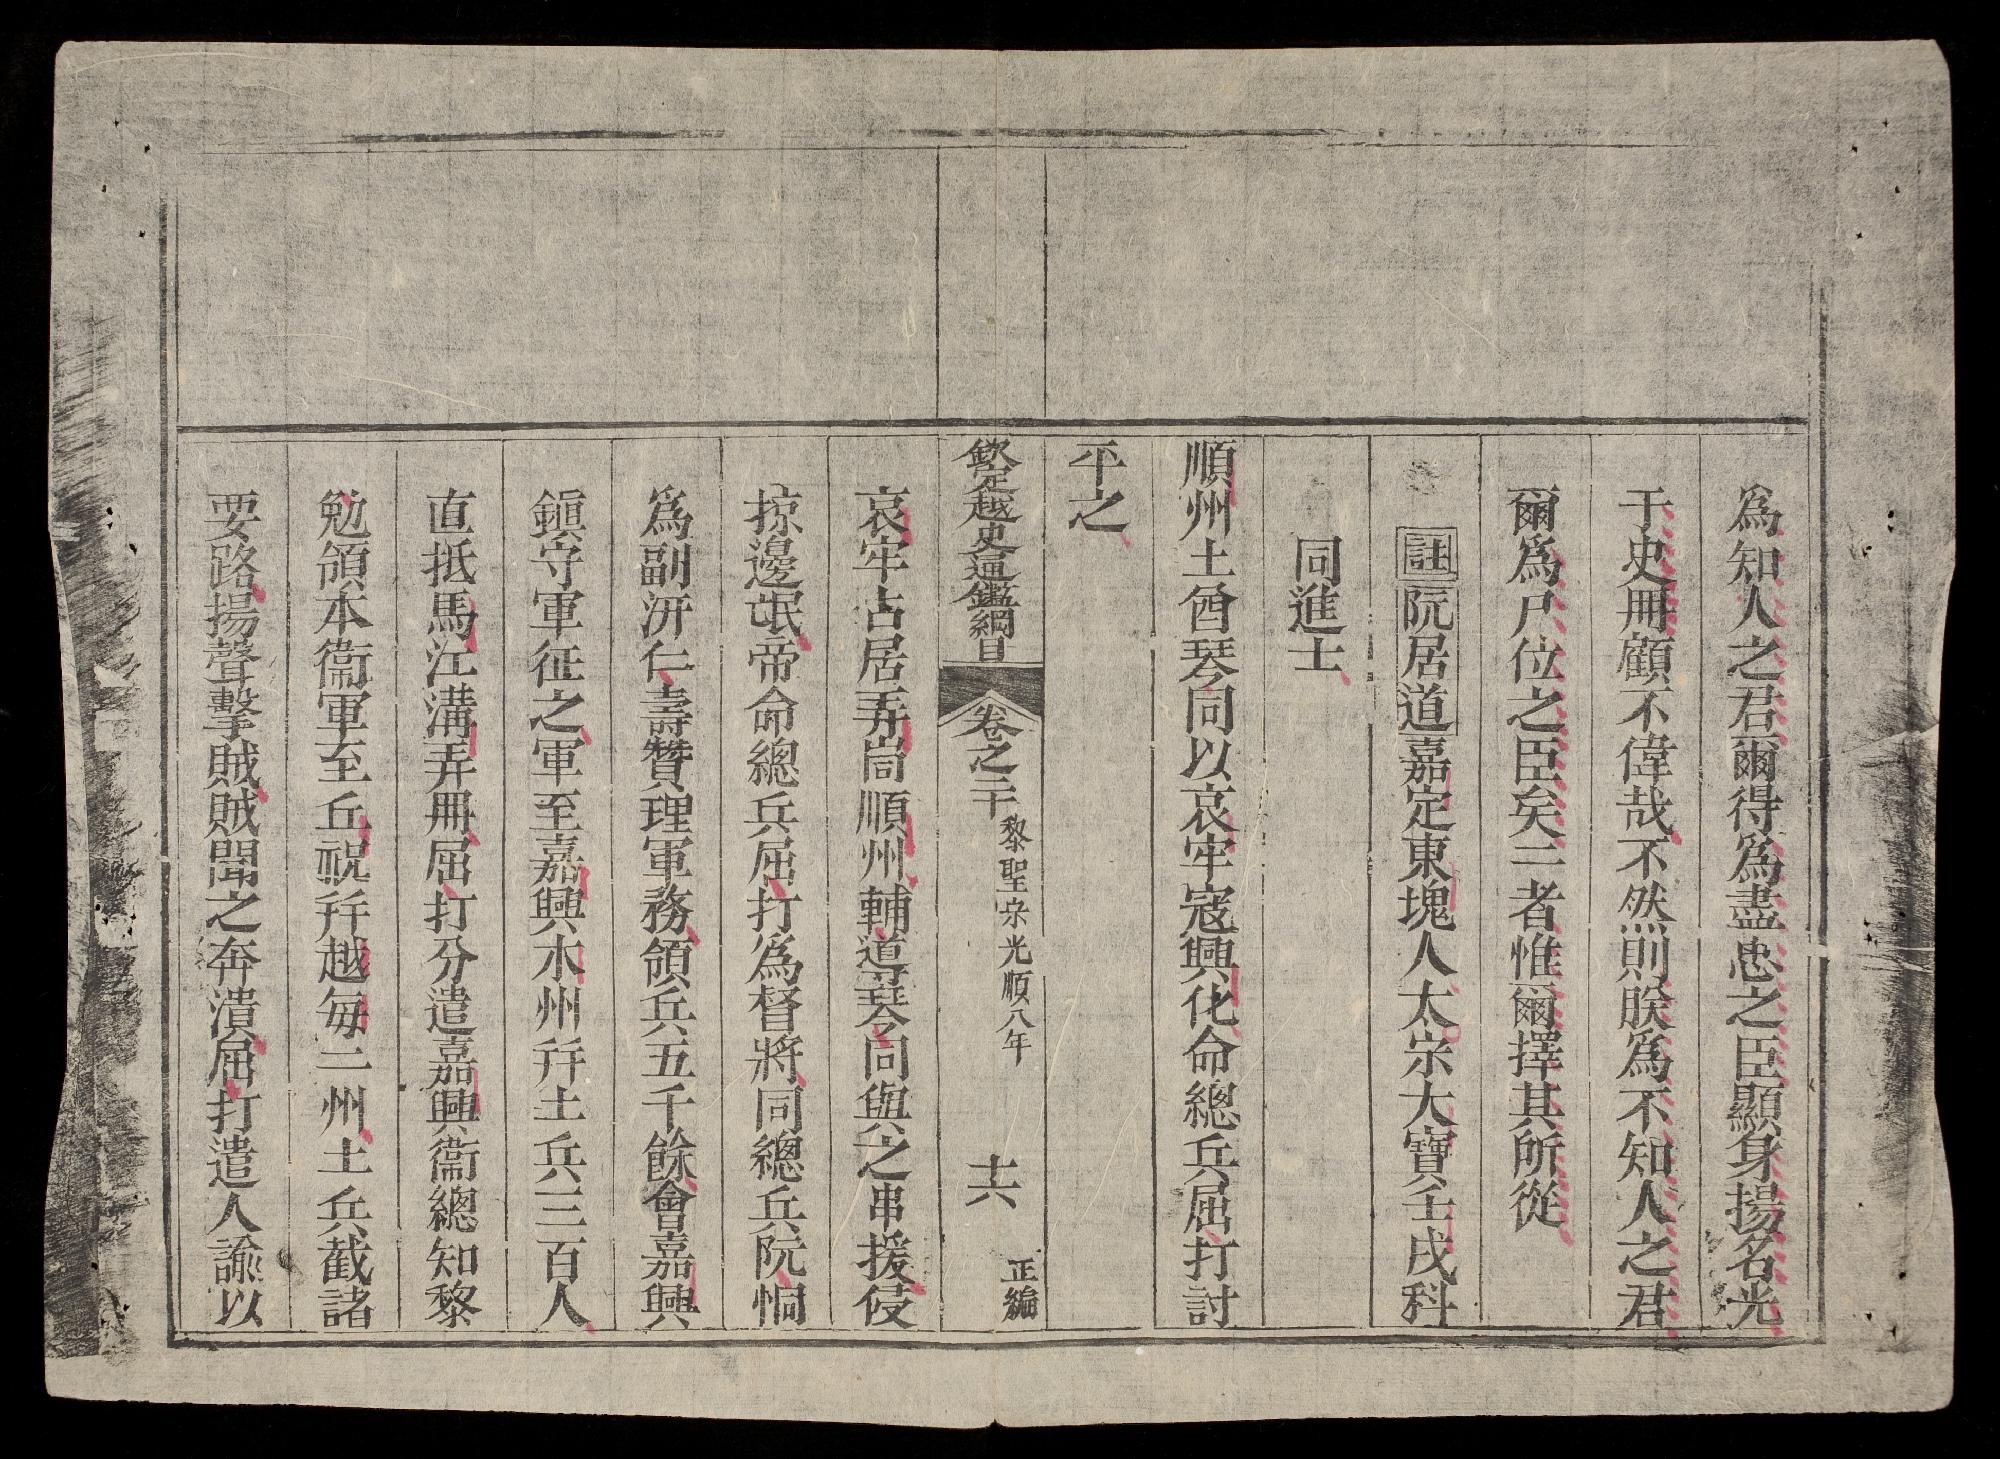 為知人之君爾得為盡忠之臣顯身揚名光
于史冊顧不偉哉不然則朕為不知人之君
爾為尸位之臣矣二者惟爾擇其所從
註阮居道嘉定東塊人太宗大寶壬戌科
同進士
順州土酋琴同以哀牢寇興化命總兵屈打討
平之
欽定越史通鑑綱目
卷之二十 黎聖宗光順八年
十六
正編
哀牢占居弄岢順州輔道琴同與之串援侵
掠邊氓帝命總兵屈打為督將同總兵阮恫
為副汧仁壽贊理軍務領兵五千餘會嘉興
鎮守軍征之軍至嘉興木州幵土兵三百人
直抵馬江溝弄冊屈打分遣嘉興衞總知黎
勉領本衞軍至丘祝幵越毎二州土兵截諸
要路揚聲擊賊賊聞之奔潰屈打遣人諭以